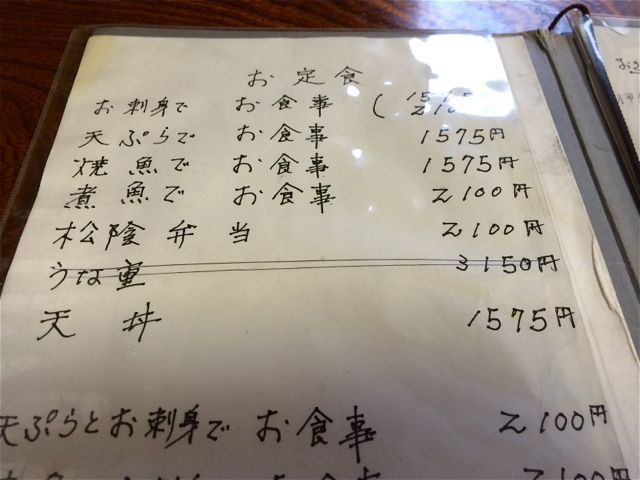 お定食
お刺身で お食事
天ぷらで お食事 1575円
焼魚で お食事 1575円
煮魚で お食事 2100円
松陰弁当 2100円
うな重 3150円
天丼 1575円
天ぷらとお刺身で お食事 2100円
2100円